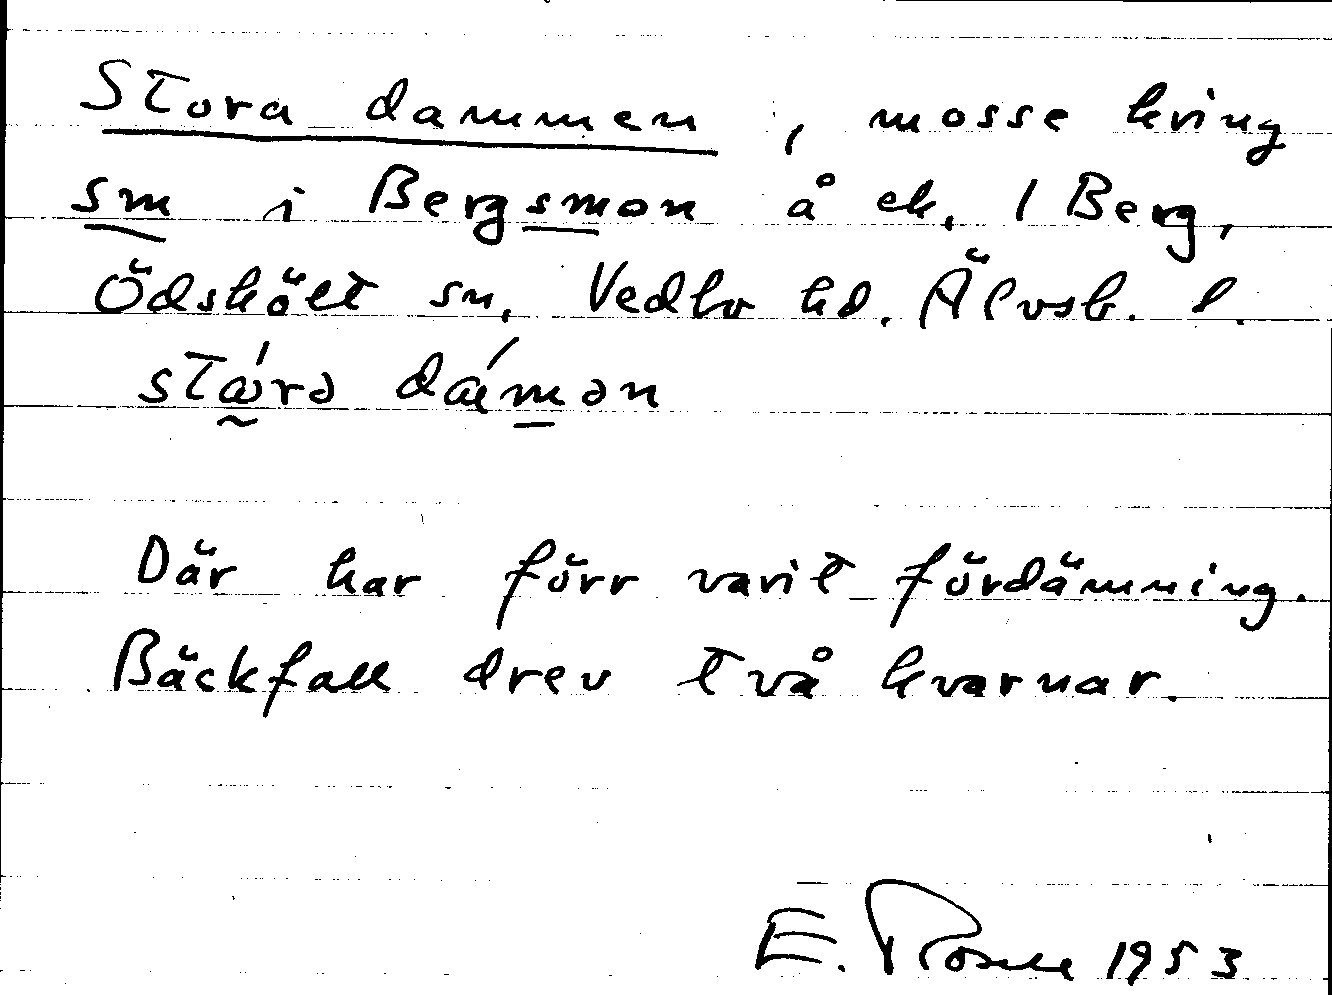 Stora dammen, mosse kring
sm i Bergsmon å ek. 1 Berg,
Ödskölt sn, Vedbo hd. Älvsb. l.
stǽrə dǽmən
Där har förr varit fördämning.
Bäckfall drev två kvarnar.
E. 1953